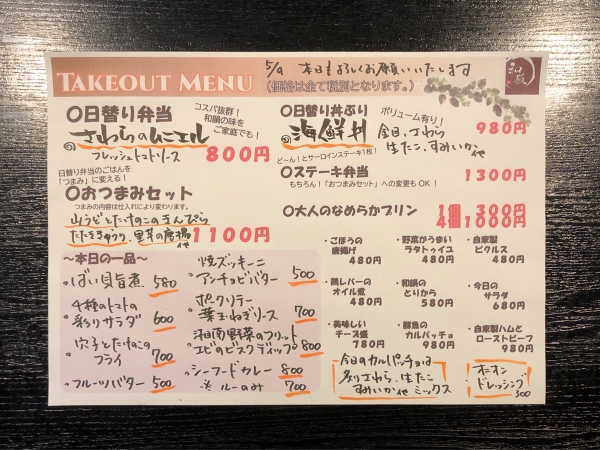 TAKEOUT MENU
5/9 本日もよろしくお願いいたします
(価格は全て税別となります。)
〇日替り弁当
コスパ抜群!
和韻の味を
ご家庭でも!
さわらのムニエル
フレッシュトマトソース
800円
日替り弁当のごはんを
「つまみ」に変える!
〇おつまみセット
つまみの内容は仕入れにより変わります。
山うどとたけのこのきんぴら
たたききゅうり、里芋の唐揚 他
1100円
〇日替り丼ぶり
ボリューム有り!
980円
海鮮丼
金目、さわら
生たこ、すみいか 他
ど〜ん!とサーロインステーキ1枚!
〇ステーキ弁当
1300円
もちろん!「おつまみセット」への変更もOK!
〇大人のなめらかプリン
1個 300円
4個1000円
〜本日の一品〜
・ばい貝旨煮 580
・4種のトマトの
彩りサラダ 600
・穴子とたけのこ
フライ 700
・フルーツバター 500
・焼ズッキーニ
アンチョビバター 500
・ポークソテー
葉玉ねぎソース 700
・湘南野菜のフリット
エビのビスクディップ 800
・シーフードカレー 800
※ルーのみ 700
・ごぼうの
唐揚げ
480円
・野菜がうまい
ラタトゥイユ
480円
・自家製
ピクルス
480円
・鶏レバーの
オイル煮
480円
・和韻の
とりから
580円
・今日の
サラダ
680円
・美味しい
チーズ盛
780円
・鮮魚の
カルパッチョ
980円
・自家製ハムと
ローストビーフ
980円
今日のカルパッチョは
炙りさわら、生たこ
すみいか 他 ミックス
オニオン
ドレッシング
300